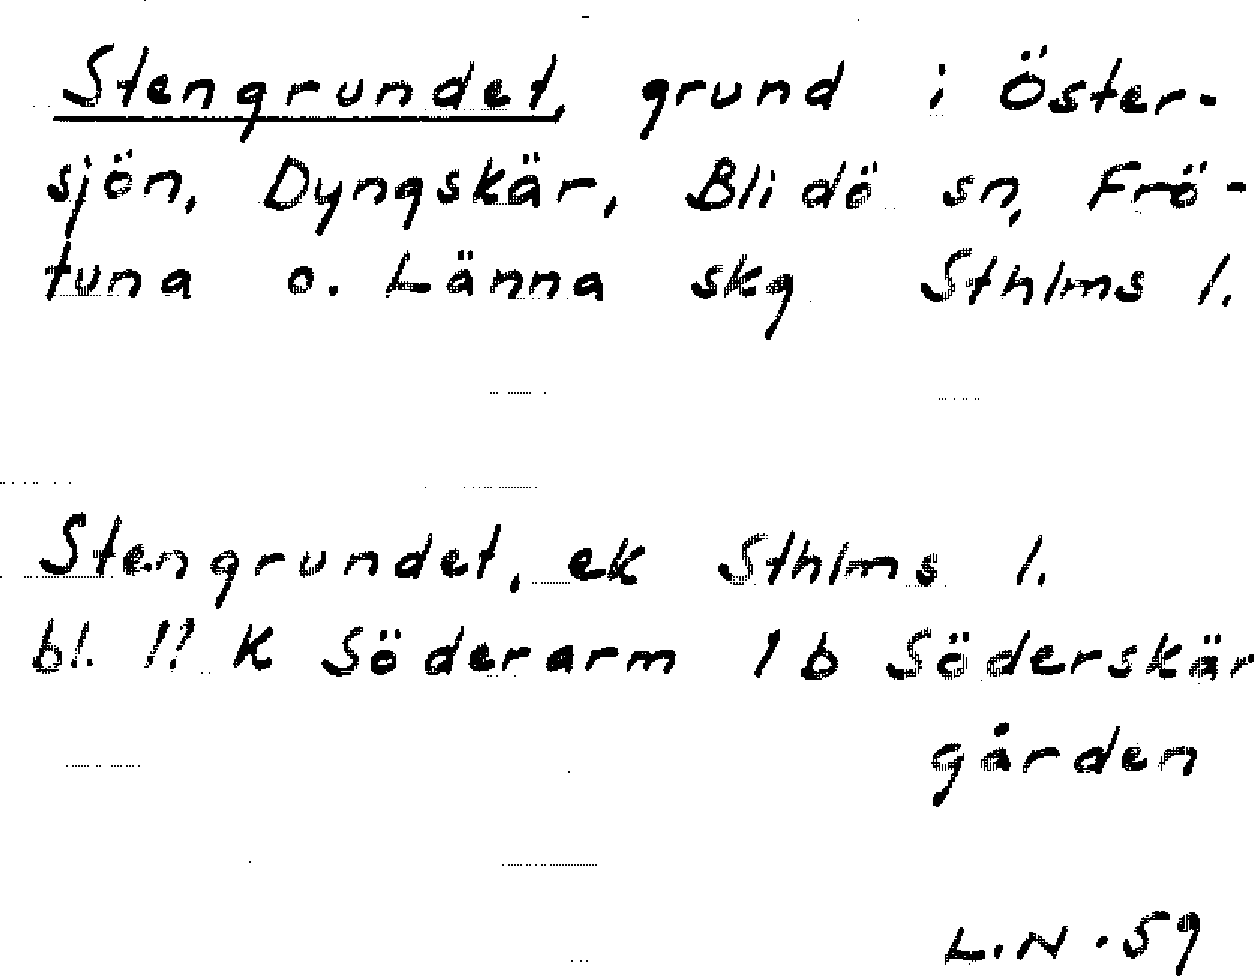 Stengrundet, grund i Öster-
sjön, Dyngskär, Blidö sn, Frö-
tuna o. Länna skg Sthlms l.
Stengrundet, ek Sthlms l.
bl. !? K Söderarm 1 b Söderskär
gården
L.N. 59